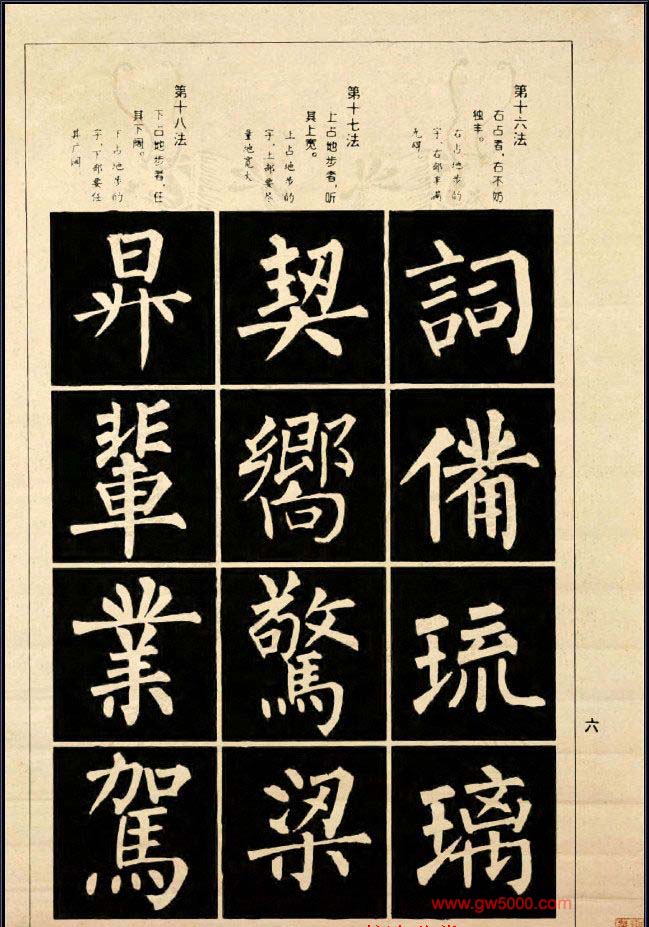 第十六法
右占者，右不妨
独丰。
右占地步的
字，右部丰满
无碍。
詞
備
琉
璃
第十七法
上占地步者，听
其上宽。
上占地步的
字，上部要尽
量地宽大
契
嚮
驚
梁
第十八法
下占地步者，任
其下阔。
下占地步的
字，下部要任
其广阔
昇
輩
業
駕
六
www.gw5000.com